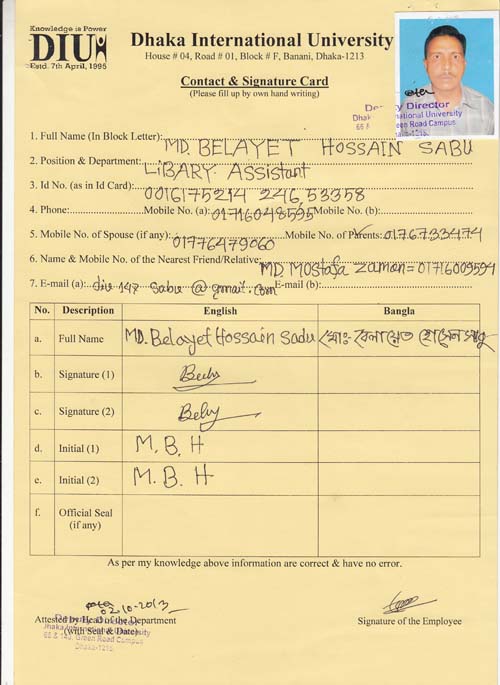 Knowledge is Power
DIU
Estd. 7th April, 1995
Dhaka International University
House # 04, Road # 01, Block # F, Banani, Dhaka-1213
Contact & Signature Card
(Please fill up by own hand writing)
Deputy Director
Dhaka International University
66 & Green Road Campus
Dhaka-1215.
1. Full Name (In Block Letter): MD. BELAYET HOSSAIN SABU
2. Position & Department: LiBARY Assistant
3. Id No. (as in Id Card): 0016175214 246,53358
4. Phone: Mobile No. (a): 01716048595 Mobile No. (b):
5. Mobile No. of Spouse (if any): 01776479060 Mobile No. of Parents: 0176733474
6. Name & Mobile No. of the Nearest Friend/Relative: MD. Mostafa Zaman = 01716009594
7. E-mail (a): diu 147 sabu @ gmail.com E-mail (b):
No. Description English Bangla
a. Full Name MD. Belayet Hossain Sadu মোঃ বেলায়েত হোসেন সাবু
b. Signature (1)
c. Signature (2)
d. Initial (1) M. B. H
e. Initial (2) M. B. H
f. Official Seal
(if any)
As per my knowledge above information are correct & have no error.
02.10.2013
Attested by Head of the Department
(with Seal & Date)
Signature of the Employee
Deputy Director
Dhaka International University
66 & 148, Green Road Campus
Dhaka-1215.